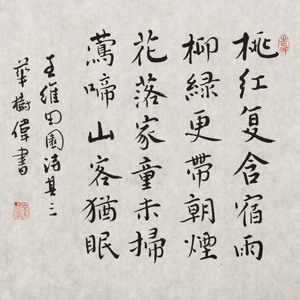 桃红复含宿雨
柳緑更帶朝煙
花落家童未掃
鶯啼山客猶眠
王維田園詩其三
華樹偉書